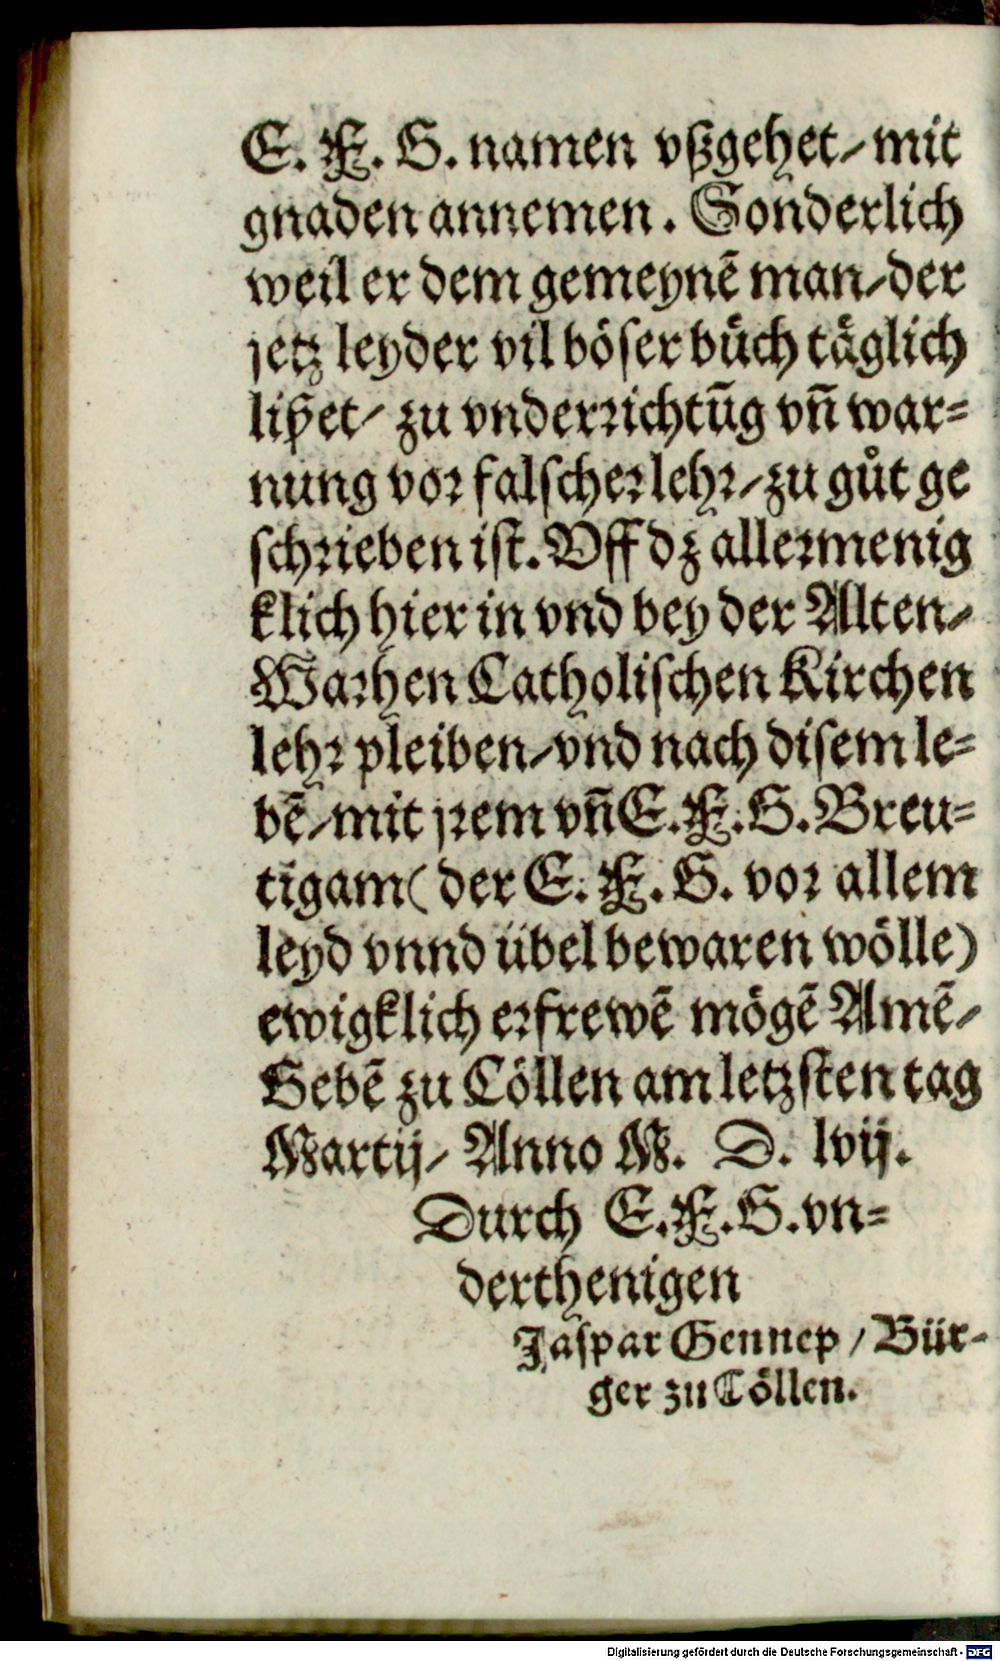 E. F. G. namen vßgehet / mit
gnaden annemen. Sonderlich
weil er dem gemeynẽ man / der
jetz leyder vil böser bůch täglich
liset / zu vnderrichtũg vñ war=
nung vor falscher lehr / zu gůt ge
schrieben ist. Vff dz allermenig
klich hier in vnd bey der Alten /
Warhen Catholischen Kirchen
lehr pleiben / vnd nach disem le=
bẽ / mit jrem vñ E. F. G. Breu=
tigam (der E. F. G. vor allem
leyd vnnd übel bewaren wölle)
ewigklich erfrewẽ mögẽ Amẽ /
Gebẽ zu Cöllen am letzsten tag
Martij / Anno M. D. lvij.
Durch E. F. G. vn=
derthenigen
Jaspar Gennep / Bür-
ger zu Cöllen.
Digitalisierung gefördert durch die Deutsche Forschungsgemeinschaft - DFG